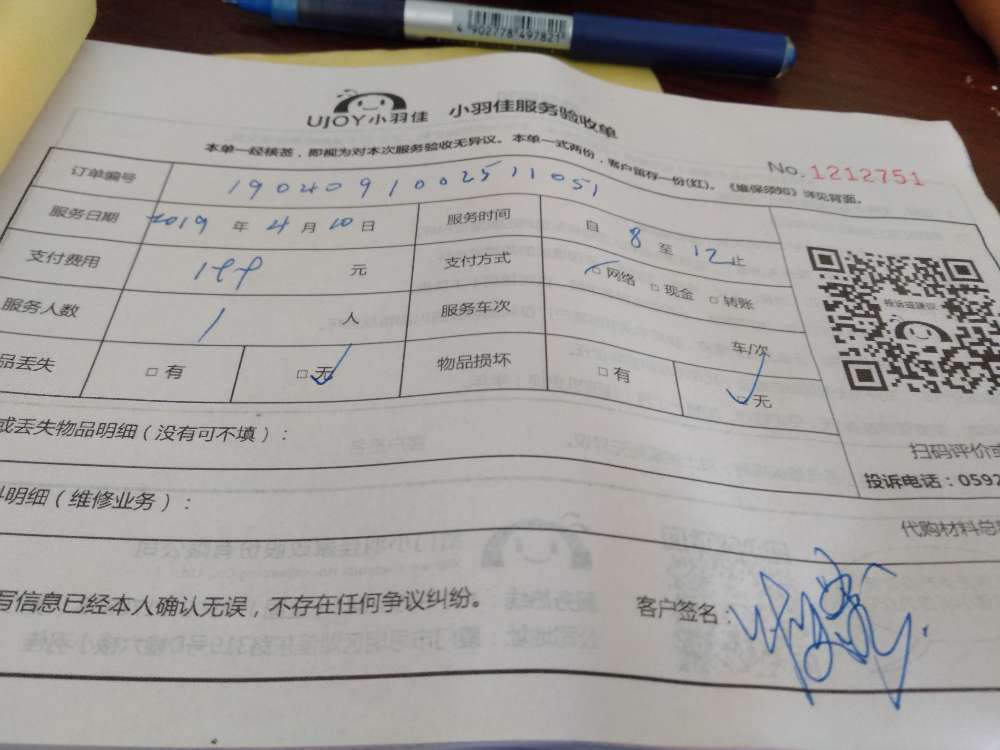 4 902778 497821
UJOY小羽佳 小羽佳服务验收单
本单一经核签，即视为对本次服务验收无异议。本单一式两份，客户留存一份(红)。《维保须知》详见背面。
No. 1212751
订单编号 190409100251 1051
服务日期 2019 年 4 月 10 日 服务时间 自 8 至 12 止
支付费用 199 元 支付方式 □ 网络 □ 现金 □ 转账
服务人数 1 人 服务车次 车/次
品丢失 □ 有 □ 无 物品损坏 □ 有 □ 无
投诉或建议
扫码评价或
投诉电话：0592
或丢失物品明细（没有可不填）：
料明细（维修业务）：
代购材料总
写信息已经本人确认无误，不存在任何争议纠纷。
客户签名：